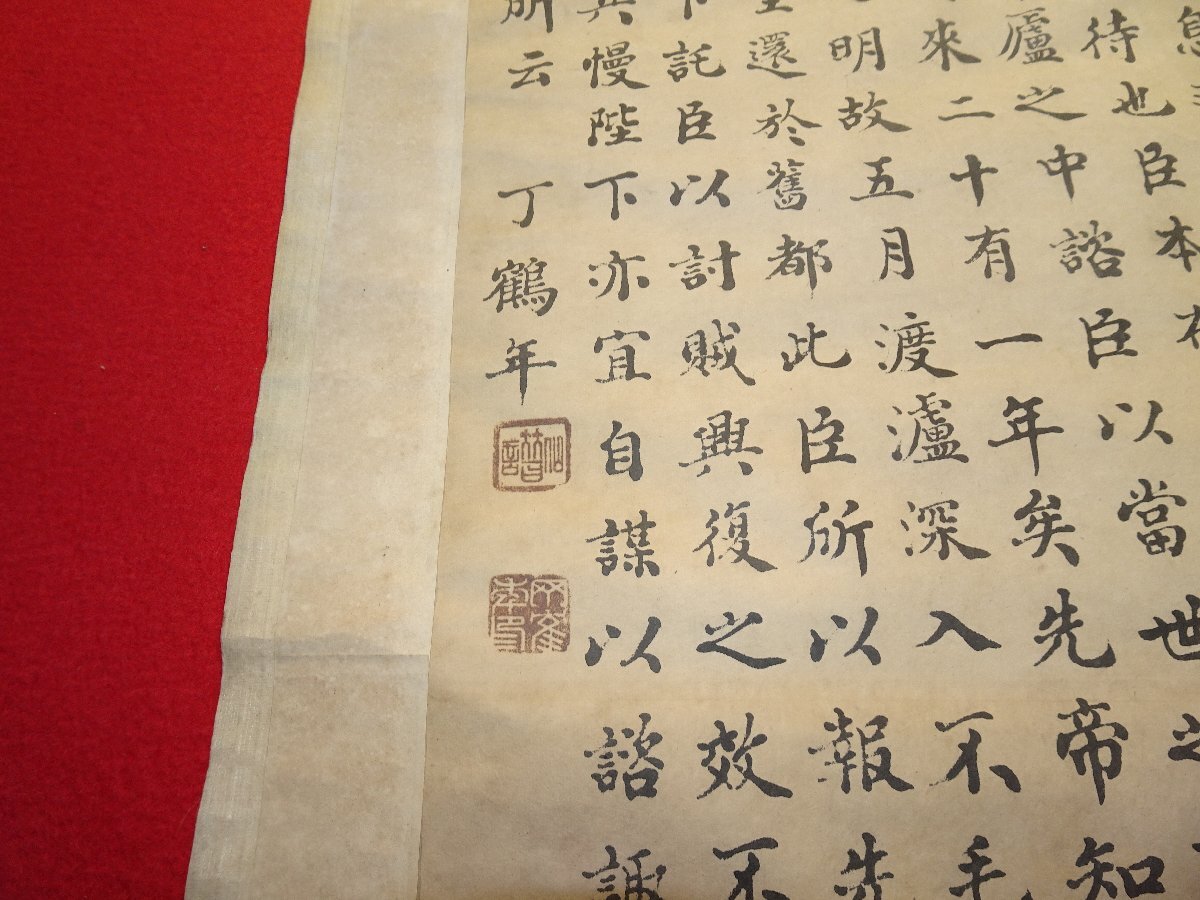 待也臣本
廬之中諮臣以當世
來二十有一年矣先帝知
明故五月渡瀘深入不毛
還於舊都此臣所以報先
託臣以討賊興復之效不
慢陛下亦宜自謀以諮諏
所云 丁鶴年